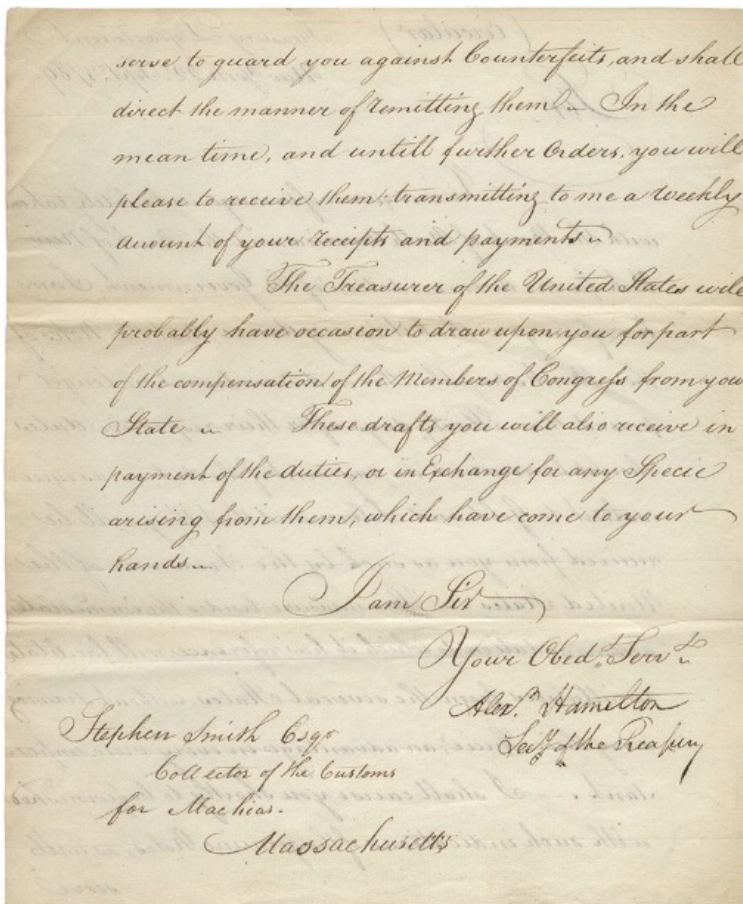 serve to guard you against Counterfeits, and shall
direct the manner of remitting them. In the
mean time, and untill further Orders, you will
please to receive them; transmitting to me a Weekly
amount of your receipts and payments
The Treasurer of the United States will
probably have occasion to draw upon you for part
of the compensation of the Members of Congress from your
State These drafts you will also receive in
payment of the duties, or in Exchange for any Specie
arising from them, which have come to your
hands
I am Sir
Your Obed.t Serv.t
Alex.r Hamilton
Sec.y of the Treasury
Stephen Smith Esqr
Collector of the Customs
for Machias.
Massachusetts